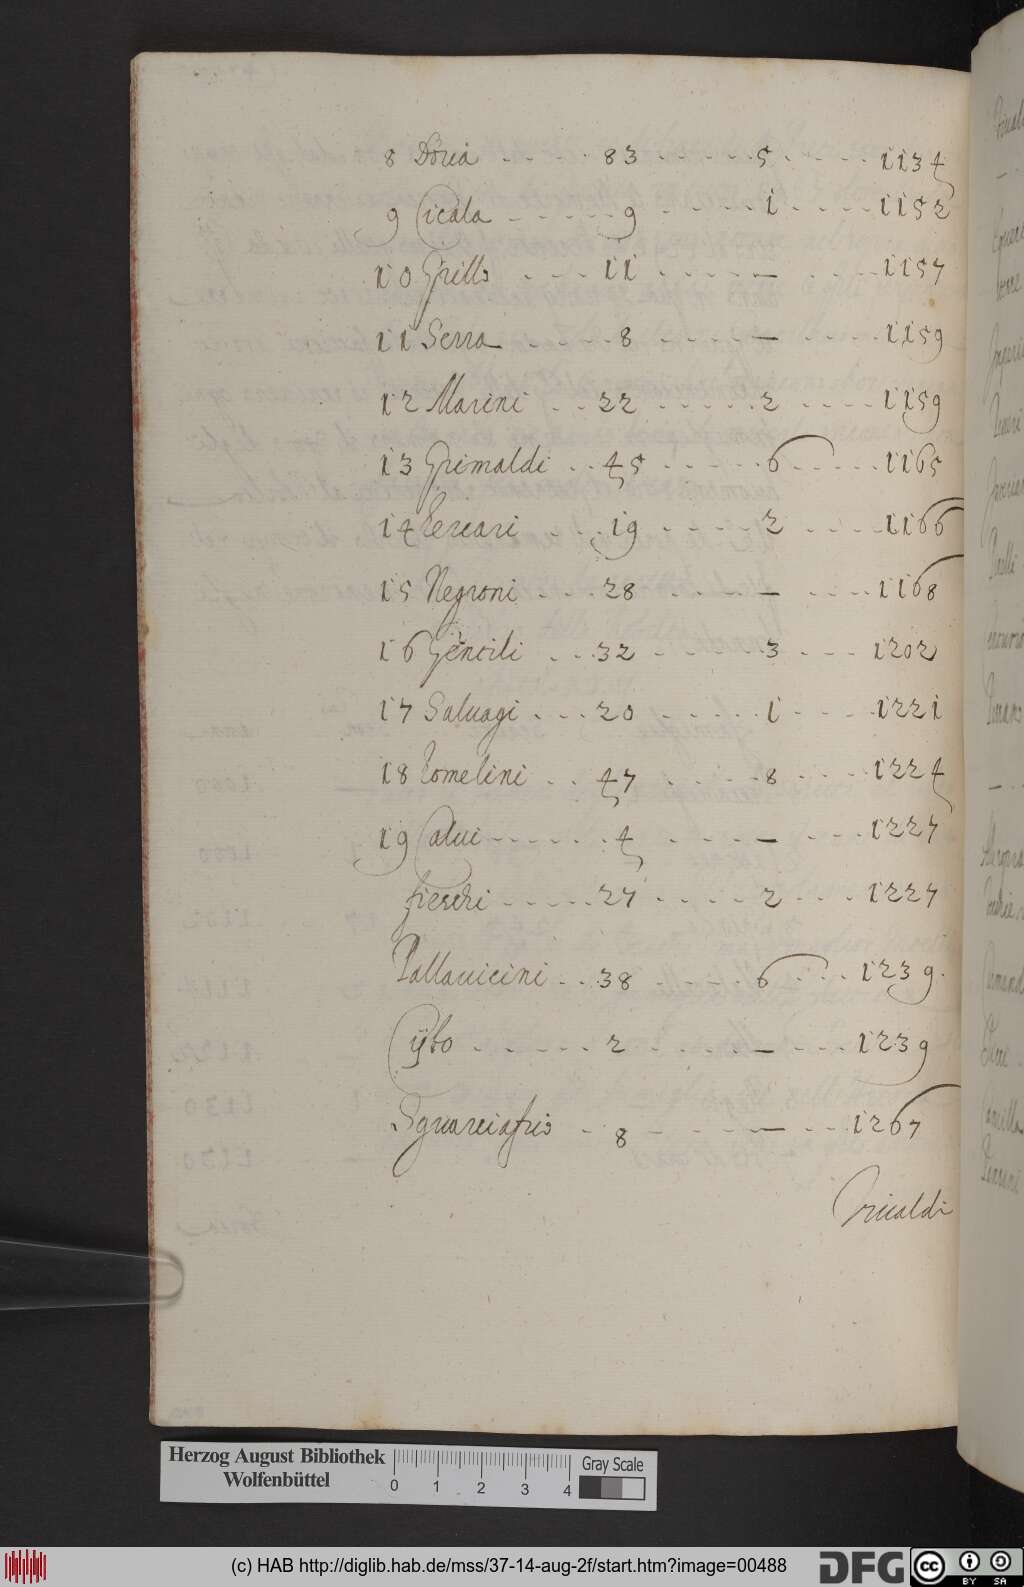 8 Doria 83 5 1134
9 Cicala 9 1 1152
10 Grillo 11 — 1157
11 Serra 8 — 1159
12 Marini 22 2 1159
13 Grimaldi 45 6 1165
14 Lercari 19 2 1166
15 Negroni 28 — 1168
16 Gentili 32 3 1202
17 Saluagi 20 1 1221
18 Lomelini 47 8 1224
19 Calui 4 — 1227
fieschi 27 2 1227
Pallauicini 38 6 1239.
Cybo 2 — 1239
Squarciafico 8 — 1267
Vivaldi
Herzog August Bibliothek
Wolfenbüttel
0 1 2 3 4
Gray Scale
(c) HAB http://diglib.hab.de/mss/37-14-aug-2f/start.htm?image=00488
DFG
cc BY SA